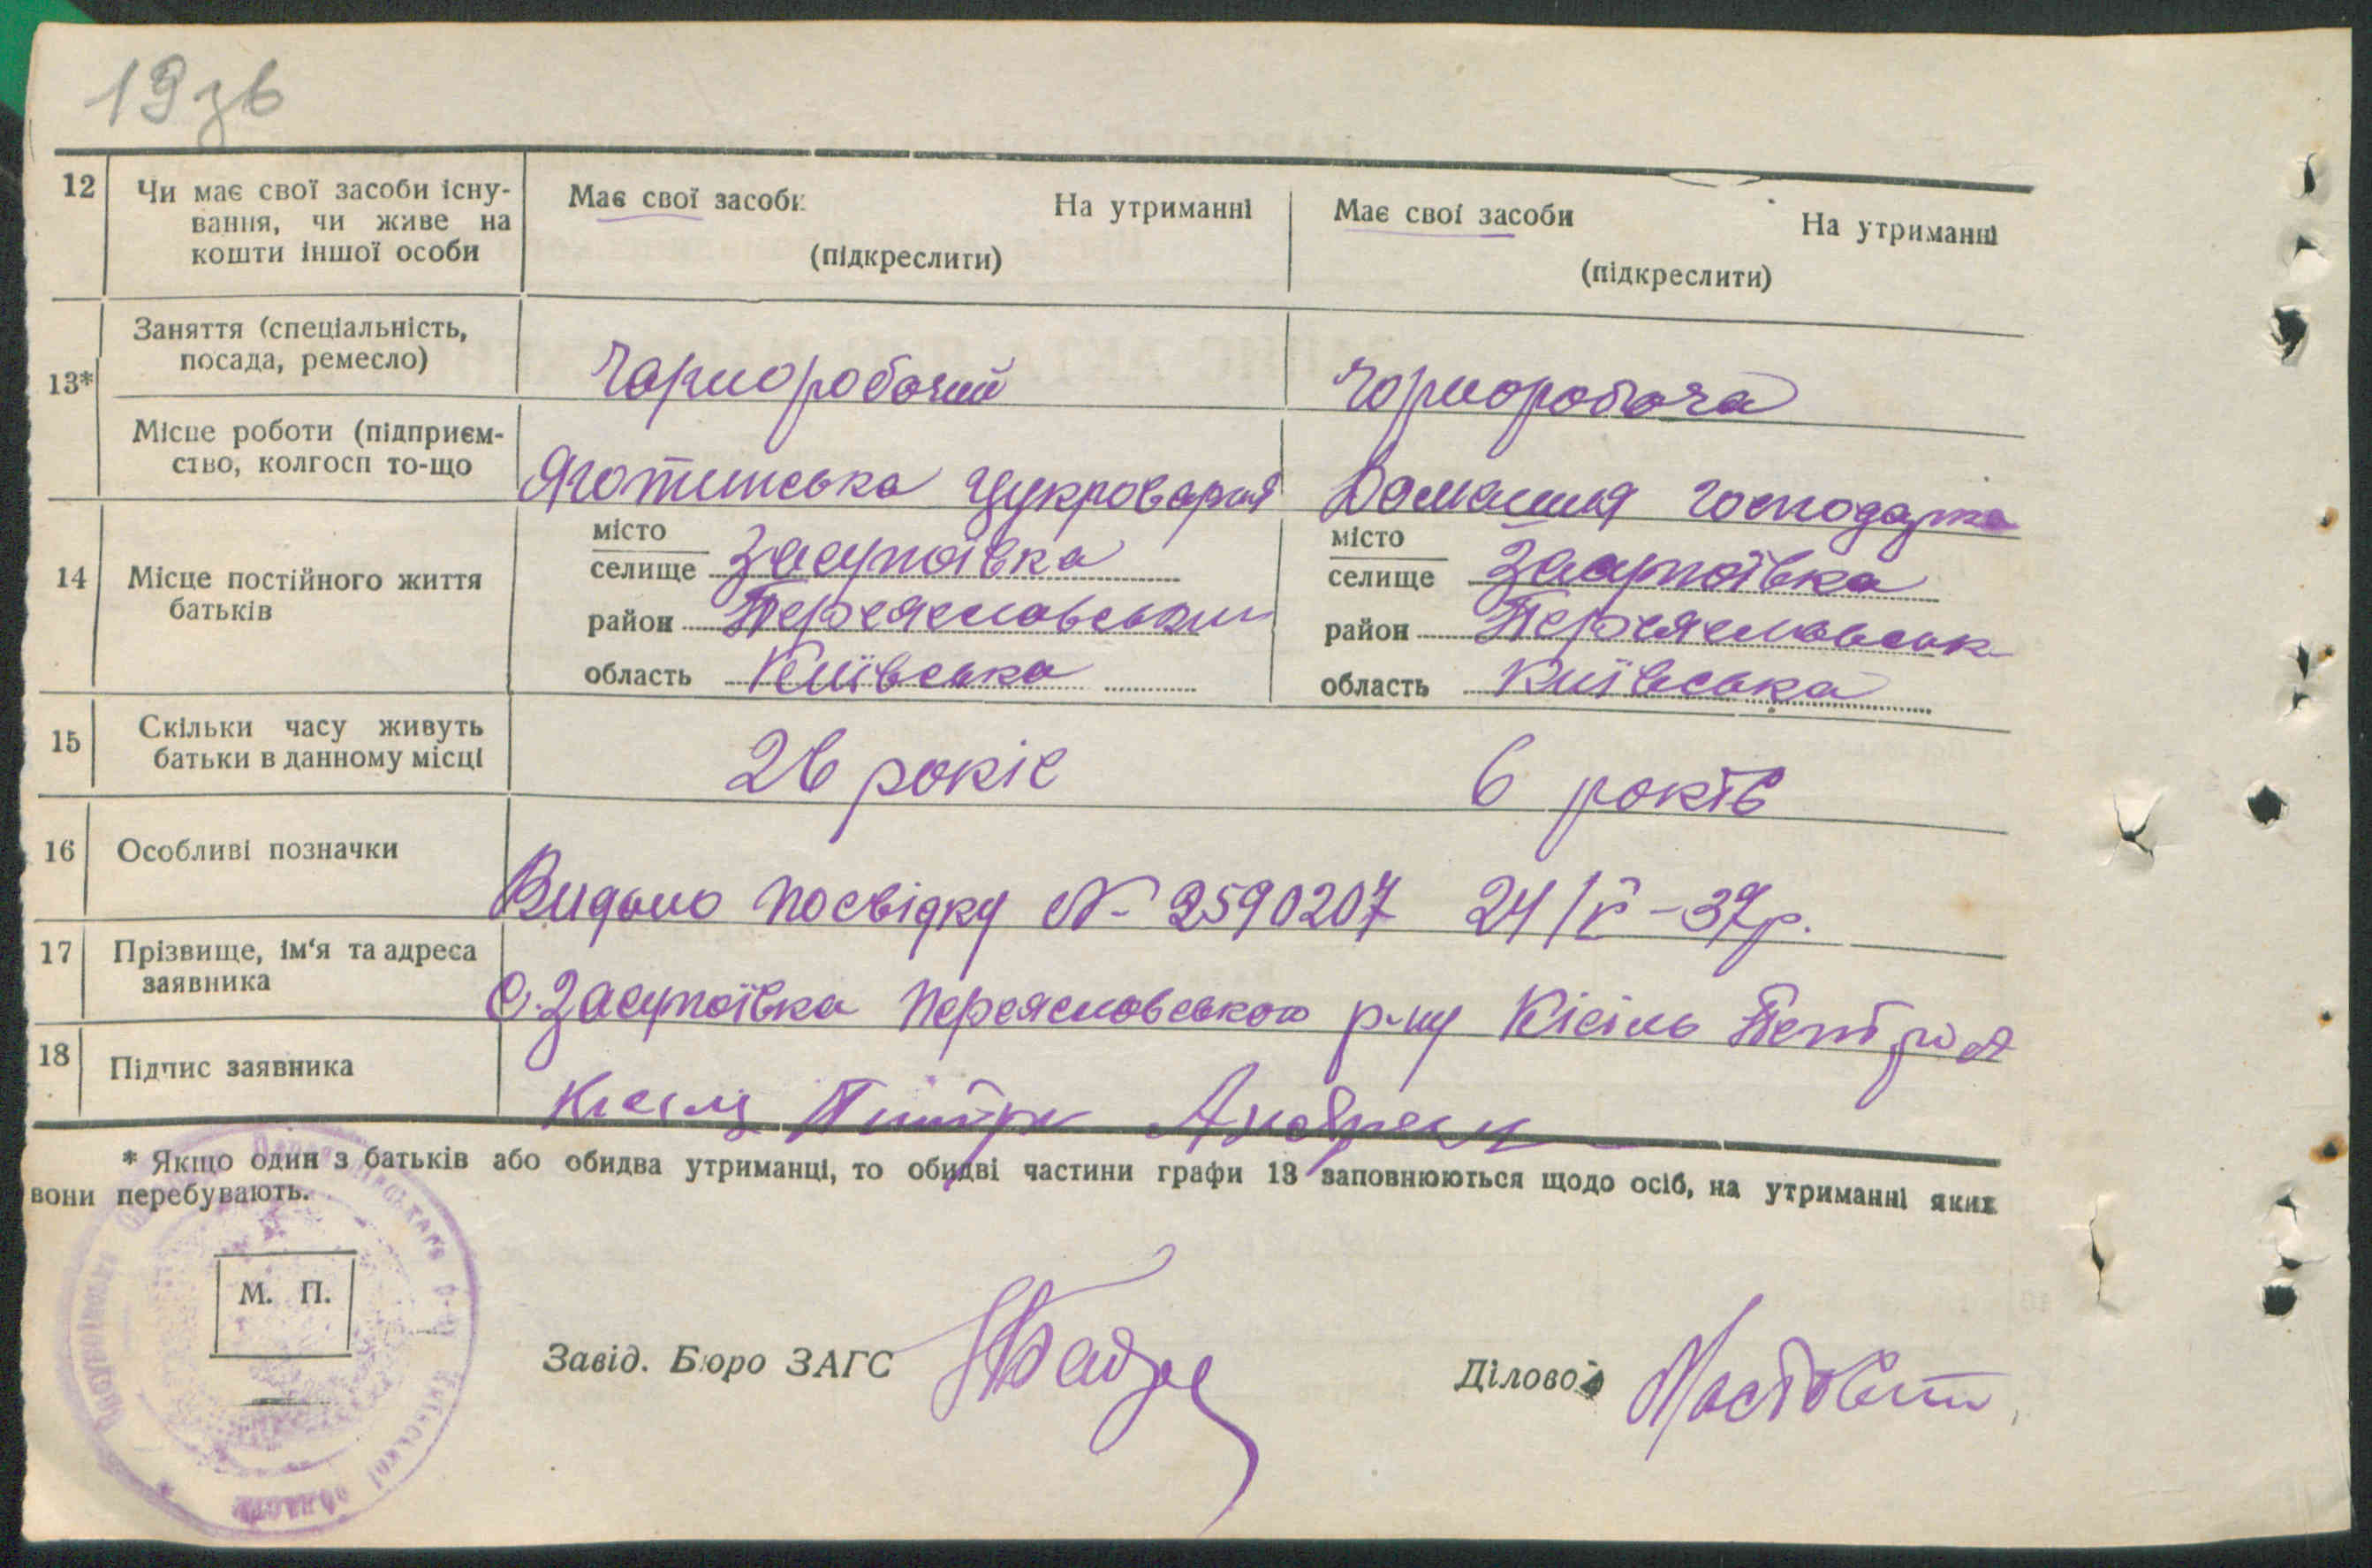 19зв
12 Чи має свої засоби існу-
вання, чи живе на
кошти іншої особи
Має свої засоби На утриманні
(підкреслити)
Має свої засоби На утриманні
(підкреслити)
13*
Заняття (спеціальність,
посада, ремесло)
Чорноробочий
Чорноробоча
Місце роботи (підприєм-
ство, колгосп то-що
Яготинська цукроварня
Домашня господарка
14 Місце постійного життя
батьків
місто
селище Засупоївка
район Переяславський
область Київська
місто
селище Засупоївка
район Переяславськ
область Київська
15 Скільки часу живуть
батьки в данному місці
26 років
6 років
16 Особливі позначки
Видано посвідку № 2590207 24/V-37р.
17 Прізвище, ім'я та адреса
заявника
С. Засупоївка Переяславського р-ну Кісіль Петро А
18 Підпис заявника
* Якщо один з батьків або обидва утриманці, то обидві частини графи 13 заповнюються щодо осіб, на утриманні яких
вони перебувають.
М. П.
Завід. Бюро ЗАГС
Діловод